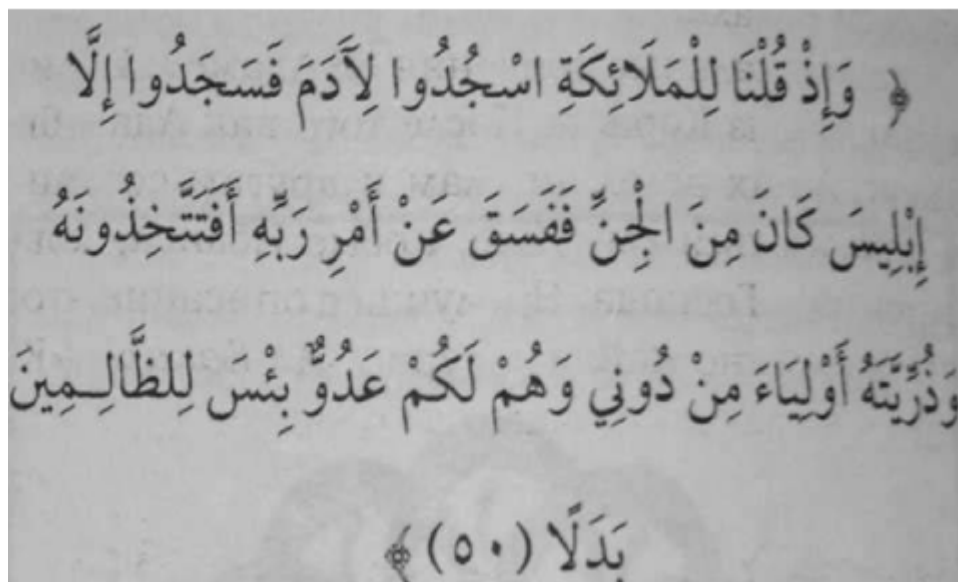 ﴿ وَإِذْ قُلْنَا لِلْمَلَائِكَةِ اسْجُدُوا لِآَدَمَ فَسَجَدُوا إِلَّا
إِبْلِيسَ كَانَ مِنَ الْجِنِّ فَفَسَقَ عَنْ أَمْرِ رَبِّهِ أَفَتَتَّخِذُونَهُ
وَذُرِّيَّتَهُ أَوْلِيَاءَ مِنْ دُونِي وَهُمْ لَكُمْ عَدُوٌّ بِئْسَ لِلظَّالِـمِينَ
بَدَلًا (٥٠) ﴾